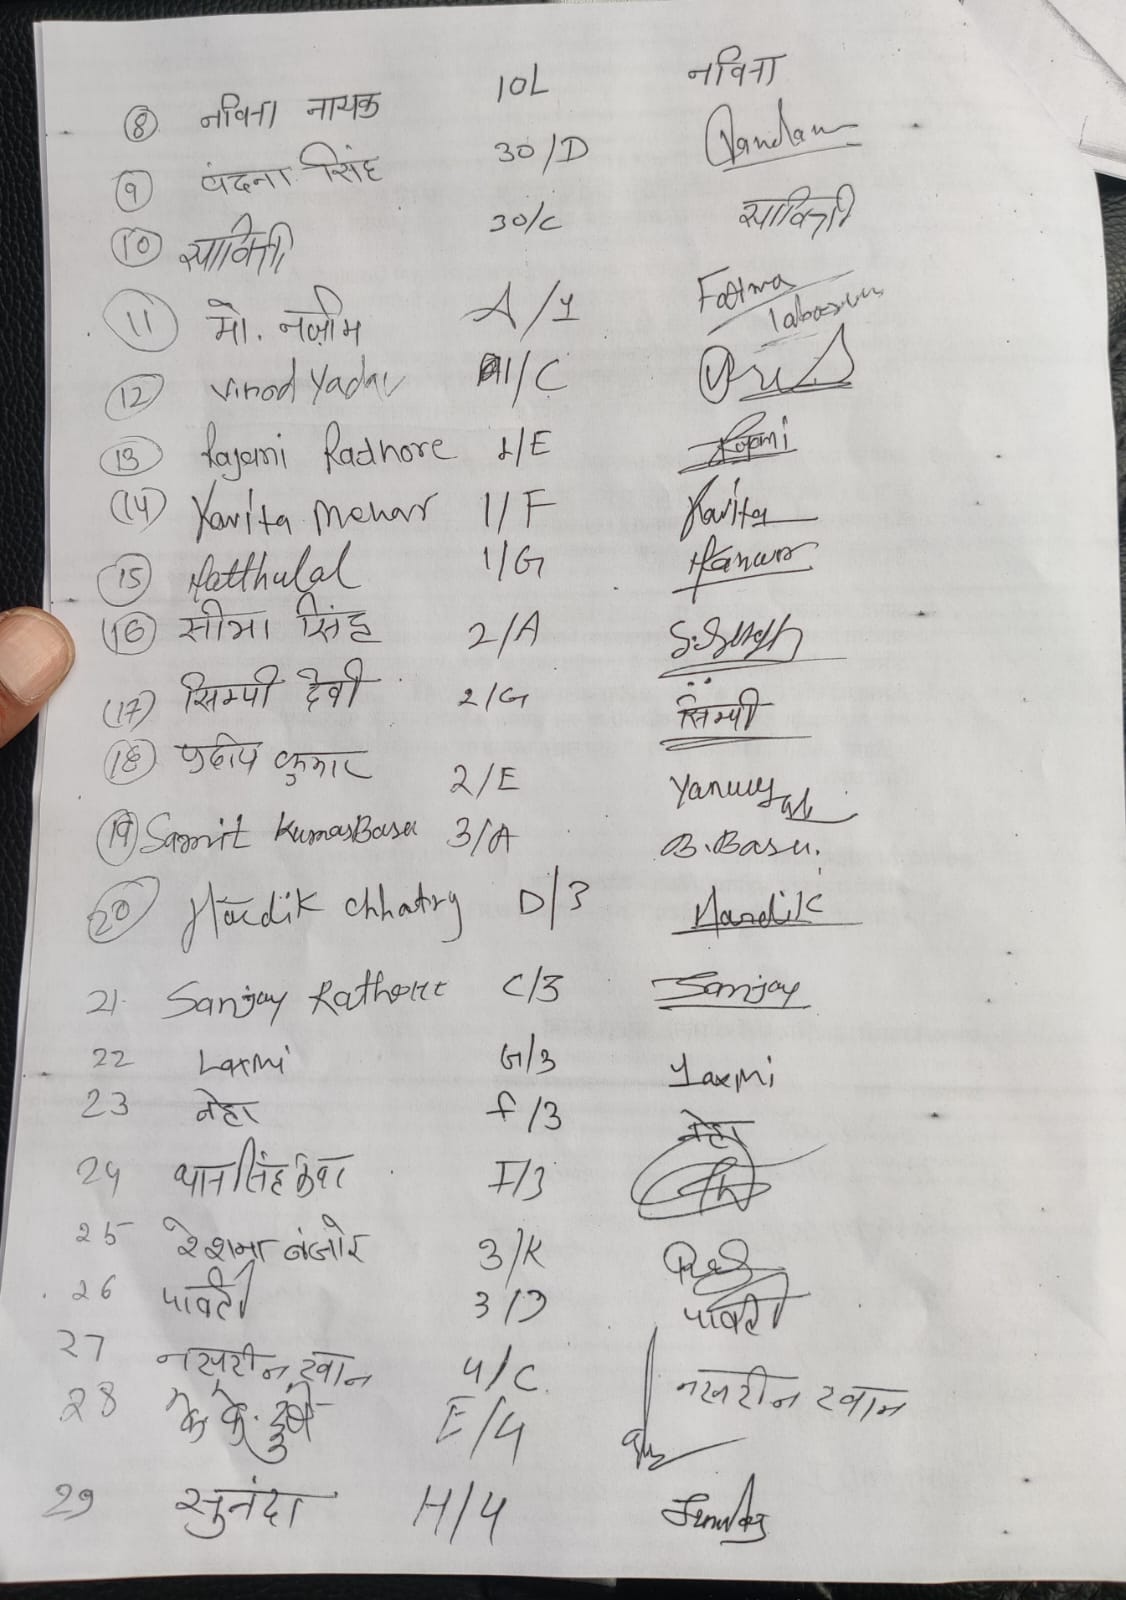 8 नविना नायक 10L नविना
9 वंदना सिंह 30/D Vandana
10 सावित्री 30/C सावित्री
11 मो. नज़ीम A/1 Fatima Tabassum
12 Vinod Yadav 1/C
13 Rajani Radhore 1/E Rajani
14 Kavita Mehar 1/F Kavita
15 Hatthulal 1/G Kanwar
16 सीमा सिंह 2/A S. Singh
17 सिम्पी देवी 2/G सिम्पी
18 प्रदीप कुमार 2/E
19 Samit Kumar Basu 3/A B. Basu.
20 Hardik Chhatry D/3 Hardik
21 Sanjay Rathore C/3 Sanjay
22 Laxmi G/3 Laxmi
23 नेहा f/3 नेहा
24 थानसिंह I/3
25 रेशमा बंजारे 3/K
26 पार्वती 3/J पार्वती
27 नसरीन खान 4/C नसरीन खान
28 के. के. दुबे E/4
29 सुनंदा H/4